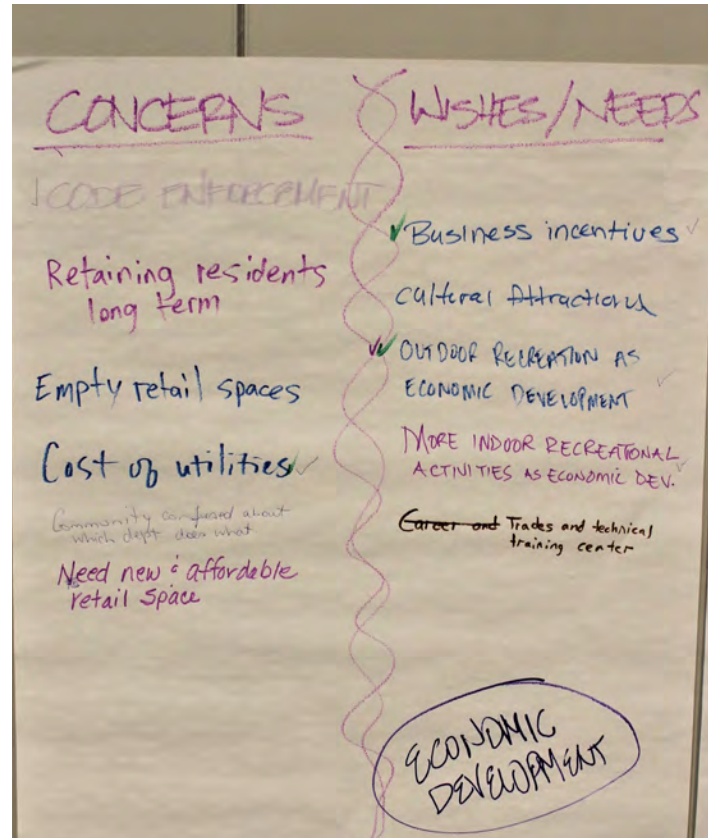 CONCERNS
CODE ENFORCEMENT
Retaining residents
long term
Empty retail spaces
Cost of utilities
Community confused about
which dept does what
Need new & affordable
retail space
WISHES/NEEDS
Business incentives
Cultural Attractions
OUTDOOR RECREATION AS
ECONOMIC DEVELOPMENT
MORE INDOOR RECREATIONAL
ACTIVITIES AS ECONOMIC DEV.
Career and Trades and technical
training center
ECONOMIC
DEVELOPMENT